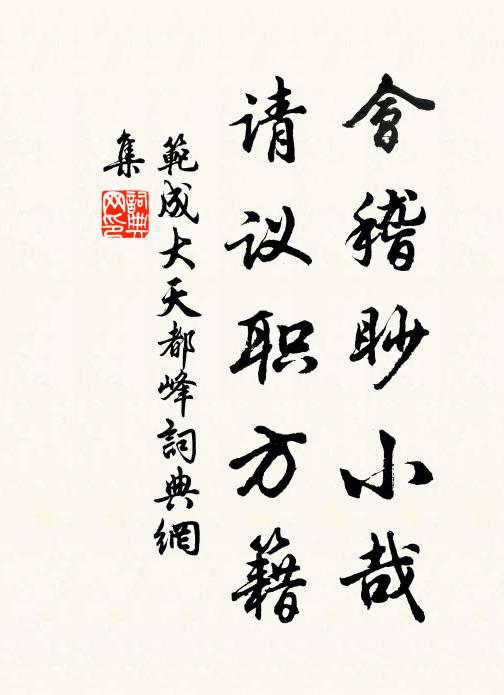 會稽眇小哉
请议职方籍
範成大天都峰詞典網
集
詞典
网印